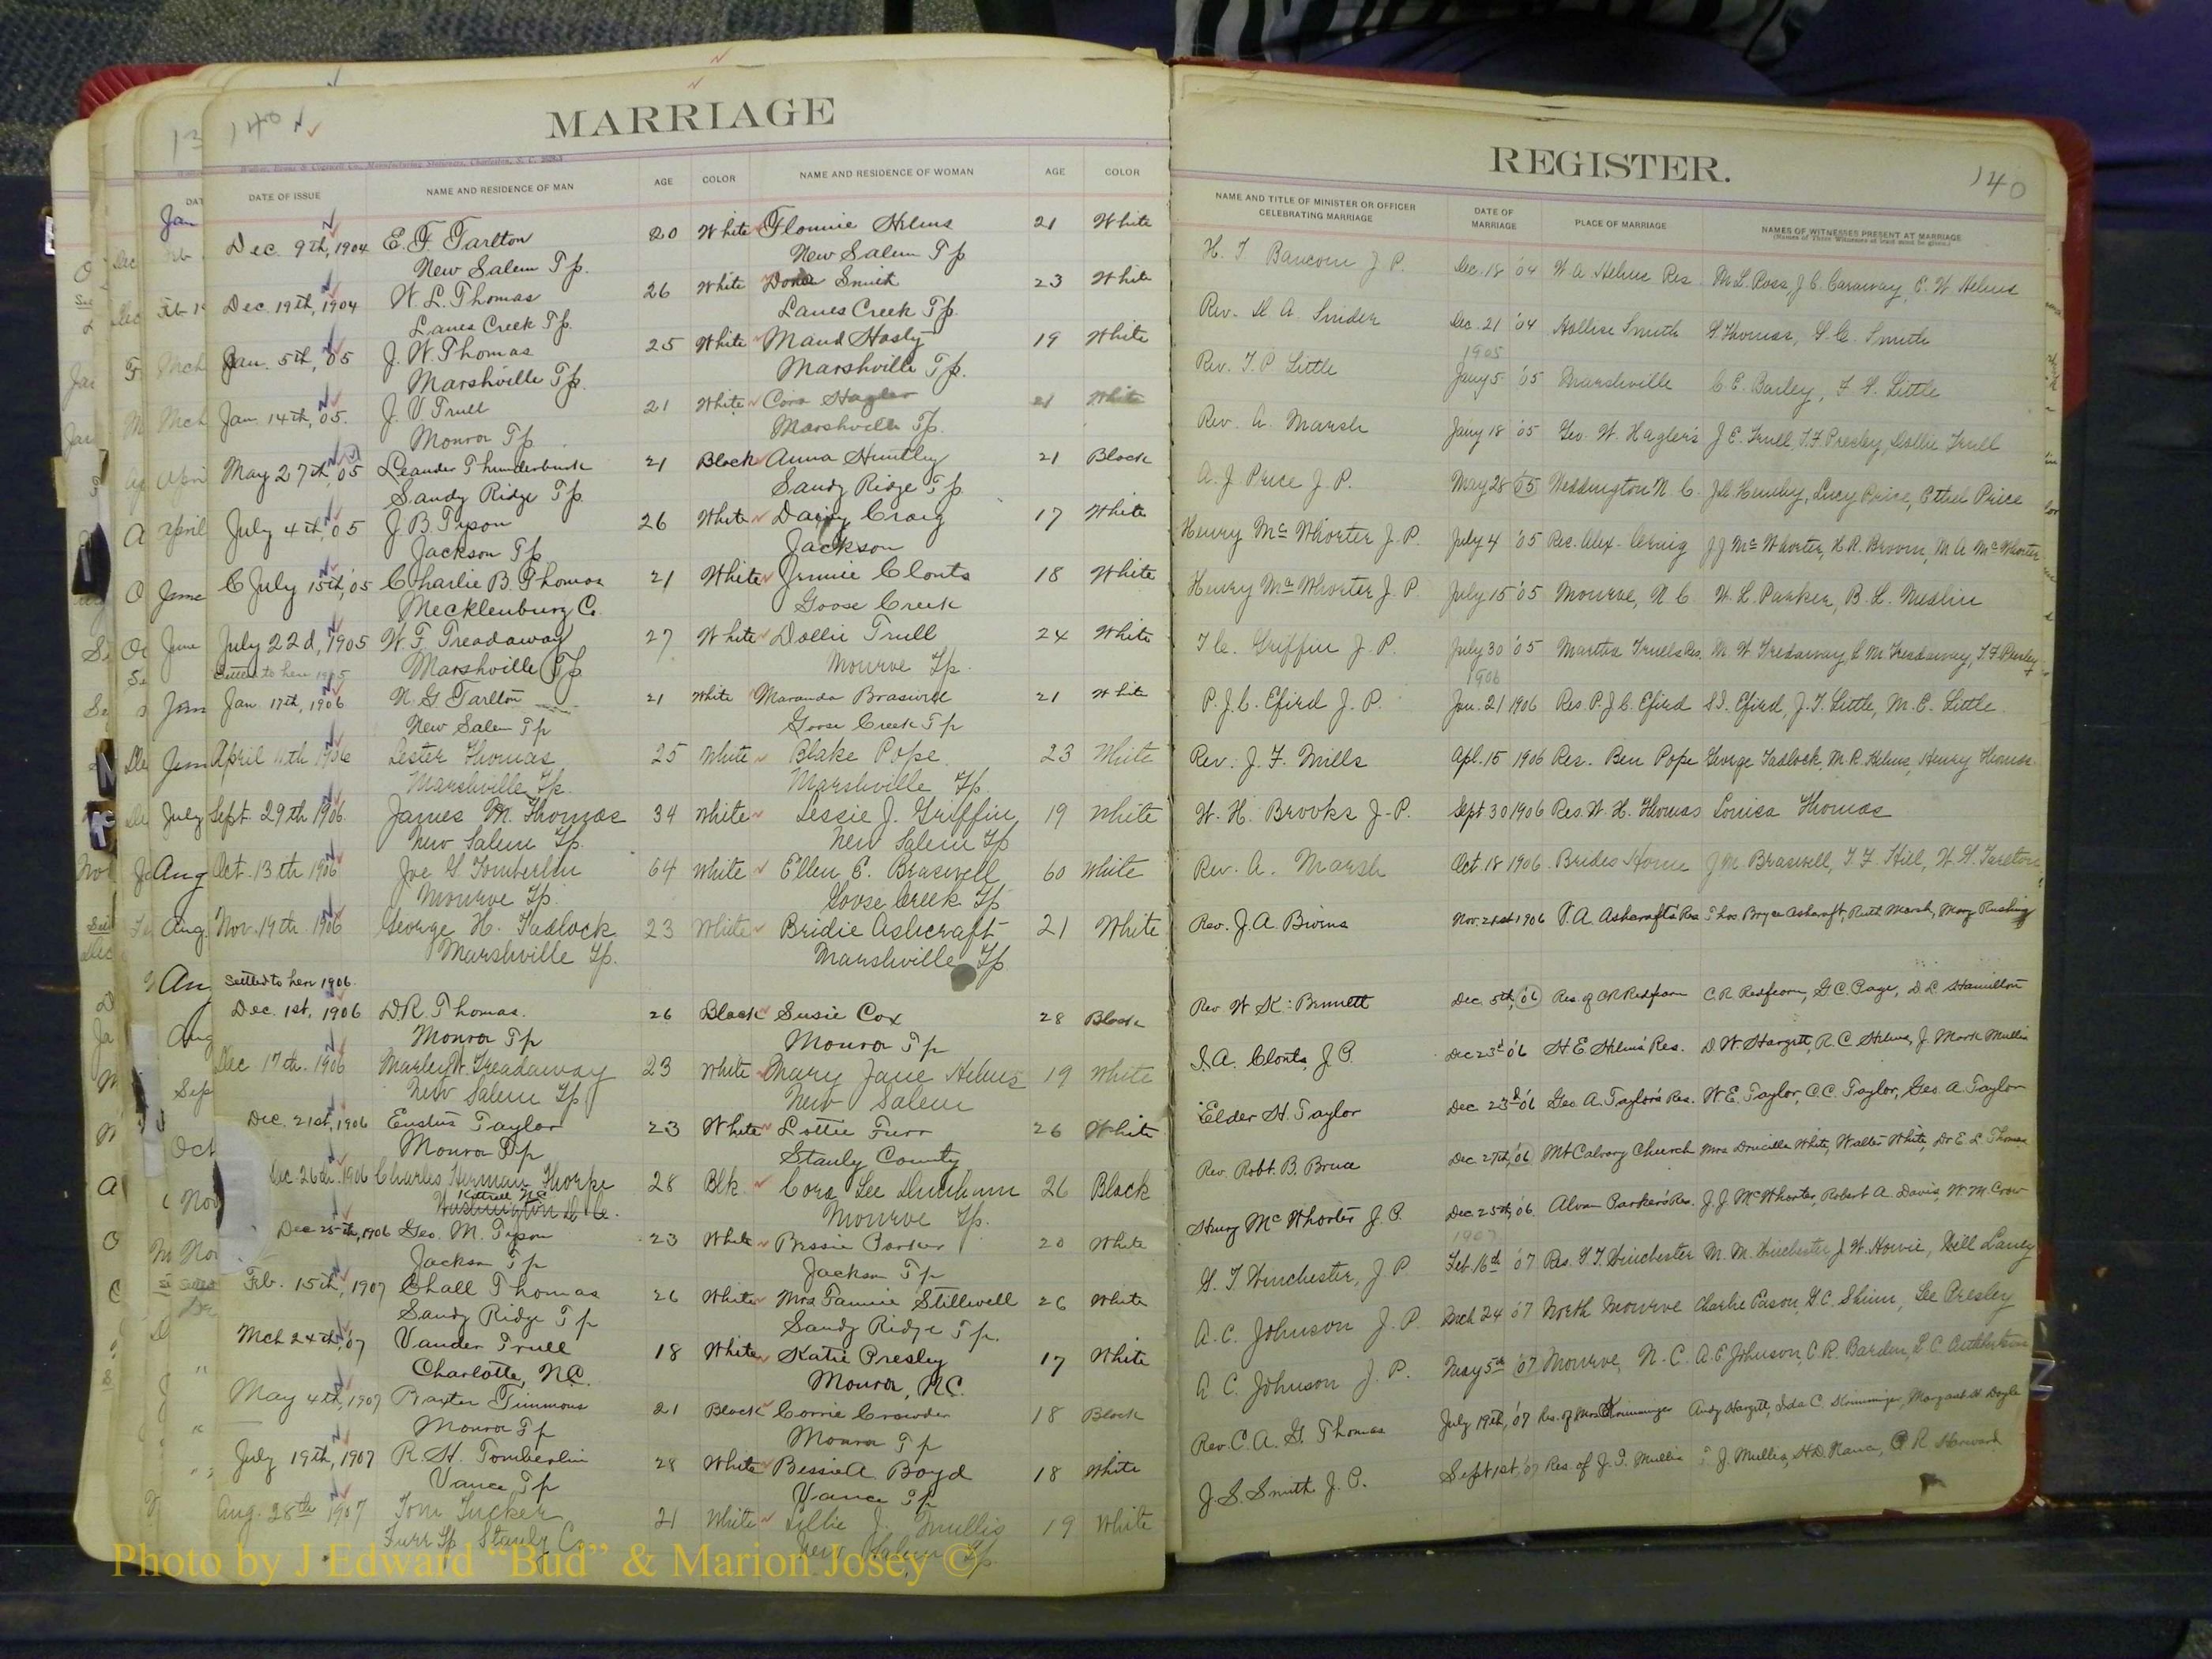 140
MARRIAGE
DATE OF ISSUE NAME AND RESIDENCE OF MAN AGE COLOR NAME AND RESIDENCE OF WOMAN AGE COLOR
Dec. 9th, 1904 E. F. Tarlton 20 White Flonnie Helms 21 White
New Salem Tp. New Salem Tp
Dec. 19th, 1904 W. L. Thomas 26 White Smith 23 White
Lanes Creek Tp. Lanes Creek Tp.
Jan. 5th, 05 J. W. Thomas 25 White Maud Hasty 19 White
Marshville Tp. Marshville Tp.
Jan. 14th, 05. J. V Trull 21 White Cora Hagler 21 White
Monroe Tp Marshville Tp.
May 27th, 05 Leander Thunderburk 21 Black Anna Huntley 21 Black
Sandy Ridge Tp. Sandy Ridge Tp
July 4th, 05 J. B. Tyson 26 White Daisy Craig 17 White
Jackson Tp Jackson
July 15th, '05 Charlie B. Thomas 21 White Jennie Clonts 18 White
Mecklenburg Co. Goose Creek
July 22d, 1905 W. F. Treadaway 27 White Dollie Trull 24 White
Settled to here 1905 Marshville Tp Monroe Tp.
Jan. 17th, 1906 N. G. Tarlton 21 White Maranda Braswell 21 White
New Salem Tp Goose Creek Tp
April 11th 1906 Lester Thomas 25 White Blake Pope 23 White
Marshville Tp. Marshville Tp.
Sept. 29th 1906 James M. Thomas 34 White Lessie J. Griffin 19 White
New Salem Tp. New Salem Tp
Oct. 13th 1906 Joe G. Tomberlin 64 White Ellen E. Braswell 60 White
Monroe Tp. Goose Creek Tp
Nov. 19th 1906 George H. Tadlock 23 White Bridie Ashcraft 21 White
Marshville Tp. Marshville Tp
Settled to here 1906.
Dec. 1st, 1906 D. R. Thomas. 26 Black Susie Cox 28 Black
Monroe Tp Monroe Tp
Dec 17th. 1906 Marley W. Treadaway 23 White Mary Jane Helms 19 White
New Salem Tp New Salem
Dec. 21st, 1906 Eustus Taylor 23 White Lottie Furr 26 White
Monroe Tp Stanly County
Dec. 26th. 1906 Charles Herman Thorpe 28 Blk. Cora Lee Dunham 26 Black
Kittrell NC
Washington D. C. Monroe Tp.
Dec 25th, 1906 Geo. M. Tyson 23 White Bessie Parker 20 White
Jackson Tp Jackson Tp
Feb. 15th, 1907 Chall Thomas 26 White Mrs Fannie Stillwell 26 White
Sandy Ridge Tp Sandy Ridge Tp.
Mch 24th, '07 Vander Trull 18 White Katie Presley 17 White
Charlotte, N.C. Monroe, N.C.
May 4th, 1907 Baxter Timmons 21 Black Corrie Crowder 18 Black
Monroe Tp Monroe Tp
July 19th, 1907 R. H. Tomberlin 28 White Bessie A. Boyd 18 White
Vance Tp Vance Tp
Aug. 28th 1907 Tom Tucker 21 White Lillie J. Mullis 19 White
Furr Tp Stanly Co. New Salem Tp.
REGISTER.
140
NAME AND TITLE OF MINISTER OR OFFICER CELEBRATING MARRIAGE DATE OF MARRIAGE PLACE OF MARRIAGE NAMES OF WITNESSES PRESENT AT MARRIAGE
(Names of Three Witnesses at least must be given.)
H. T. Baucom J. P. Dec. 18 '04 W. A. Helms Res. M. L. Ross, J. C. Caraway, C. W. Helms
Rev. D. A. Snider Dec. 21 '04 Hollise Smith S. Thomas, S. C. Smith
1905
Rev. T. P. Little Jany 5 '05 Marshville C. E. Bailey, F. S. Little
Rev. A. Marsh Jany 18 '05 Geo. W. Hagler's J. E. Trull, T. F. Presley, Dollie Trull
A. J. Price J. P. May 28 05 Weddington N. C. Lucy Price, Ethel Price
Henry McWhorter J. P. July 4 '05 Res. Alex. Craig J J McWhorter, H. R. Broom, M. A. McWhorter
Henry McWhorter J. P. July 15 '05 Monroe, N. C. W. L. Parker, B. L. Medlin
T. C. Griffin J. P. July 30 '05 Martha Trulls Res. M. W. Tredaway, C. M. Treadaway, T. F. Presley
1906
P. J. C. Efird J. P. Jan. 21 1906 Res. P. J. C. Efird S. I. Efird, J. T. Little, M. E. Little
Rev. J. F. Mills Apl. 15 1906 Res. Ben Pope George Tadlock, M. R. Helms, Henry Thomas
W. H. Brooks J. P. Sept 30 1906 Res. W. H. Thomas Louisa Thomas
Rev. A. Marsh Oct. 18 1906 Brides Home J. M. Braswell, T. F. Hill, W. G. Tarlton
Rev. J. A. Bivins Nov. 21st 1906 V. A. Ashcraft's Res Thos. Bryce Ashcraft, Ruth Marsh, Mary Rushing
Rev W. K. Bennett Dec 5th, 06 Res. of C R Redfearn C. R. Redfearn, G. C. Page, D. L. Hamilton
I. A. Clonts, J. P. Dec 23d '06 H. E Helms' Res. D. W. Hargett, R. C. Helms, J. Mark Mullis
Elder H. Taylor Dec 23d '06 Geo A. Taylor's Res. W. E. Taylor, C. C. Taylor, Geo. A. Taylor
Rev. Robt. B. Bruce Dec 27th, 06 Mt Calvary Church Mrs Drucilla White, Walter White, Dr E. L. Thomas
Henry McWhorter J. P. Dec. 25th, '06. Alvan Parker's Res. J. J. McWhorter, Robert A. Davis, W. M. Crow
1907
G. T. Winchester, J. P. Feb. 16th '07 Res. G. T. Winchester M. M. Winchester, J. W. Howie, Bell Laney
A. C. Johnson J. P. Mch 24 07 North Monroe Charlie Eason, G. C. Shinn, Lee Presley
A C. Johnson J. P. May 5th '07 Monroe, N. C. A. E Johnson, C. R. Barden, L. C.
Rev. C. A. G. Thomas July 19th, '07 Res. of Mrs Krimminger Andy Hargett, Ida C. Krimminger, Margaret H. Doyle
J. S. Smith J. P. Sept 1st, '07 Res. of J. I. Mullis J. Mullis,
Photo by J Edward “Bud” & Marion Josey ©